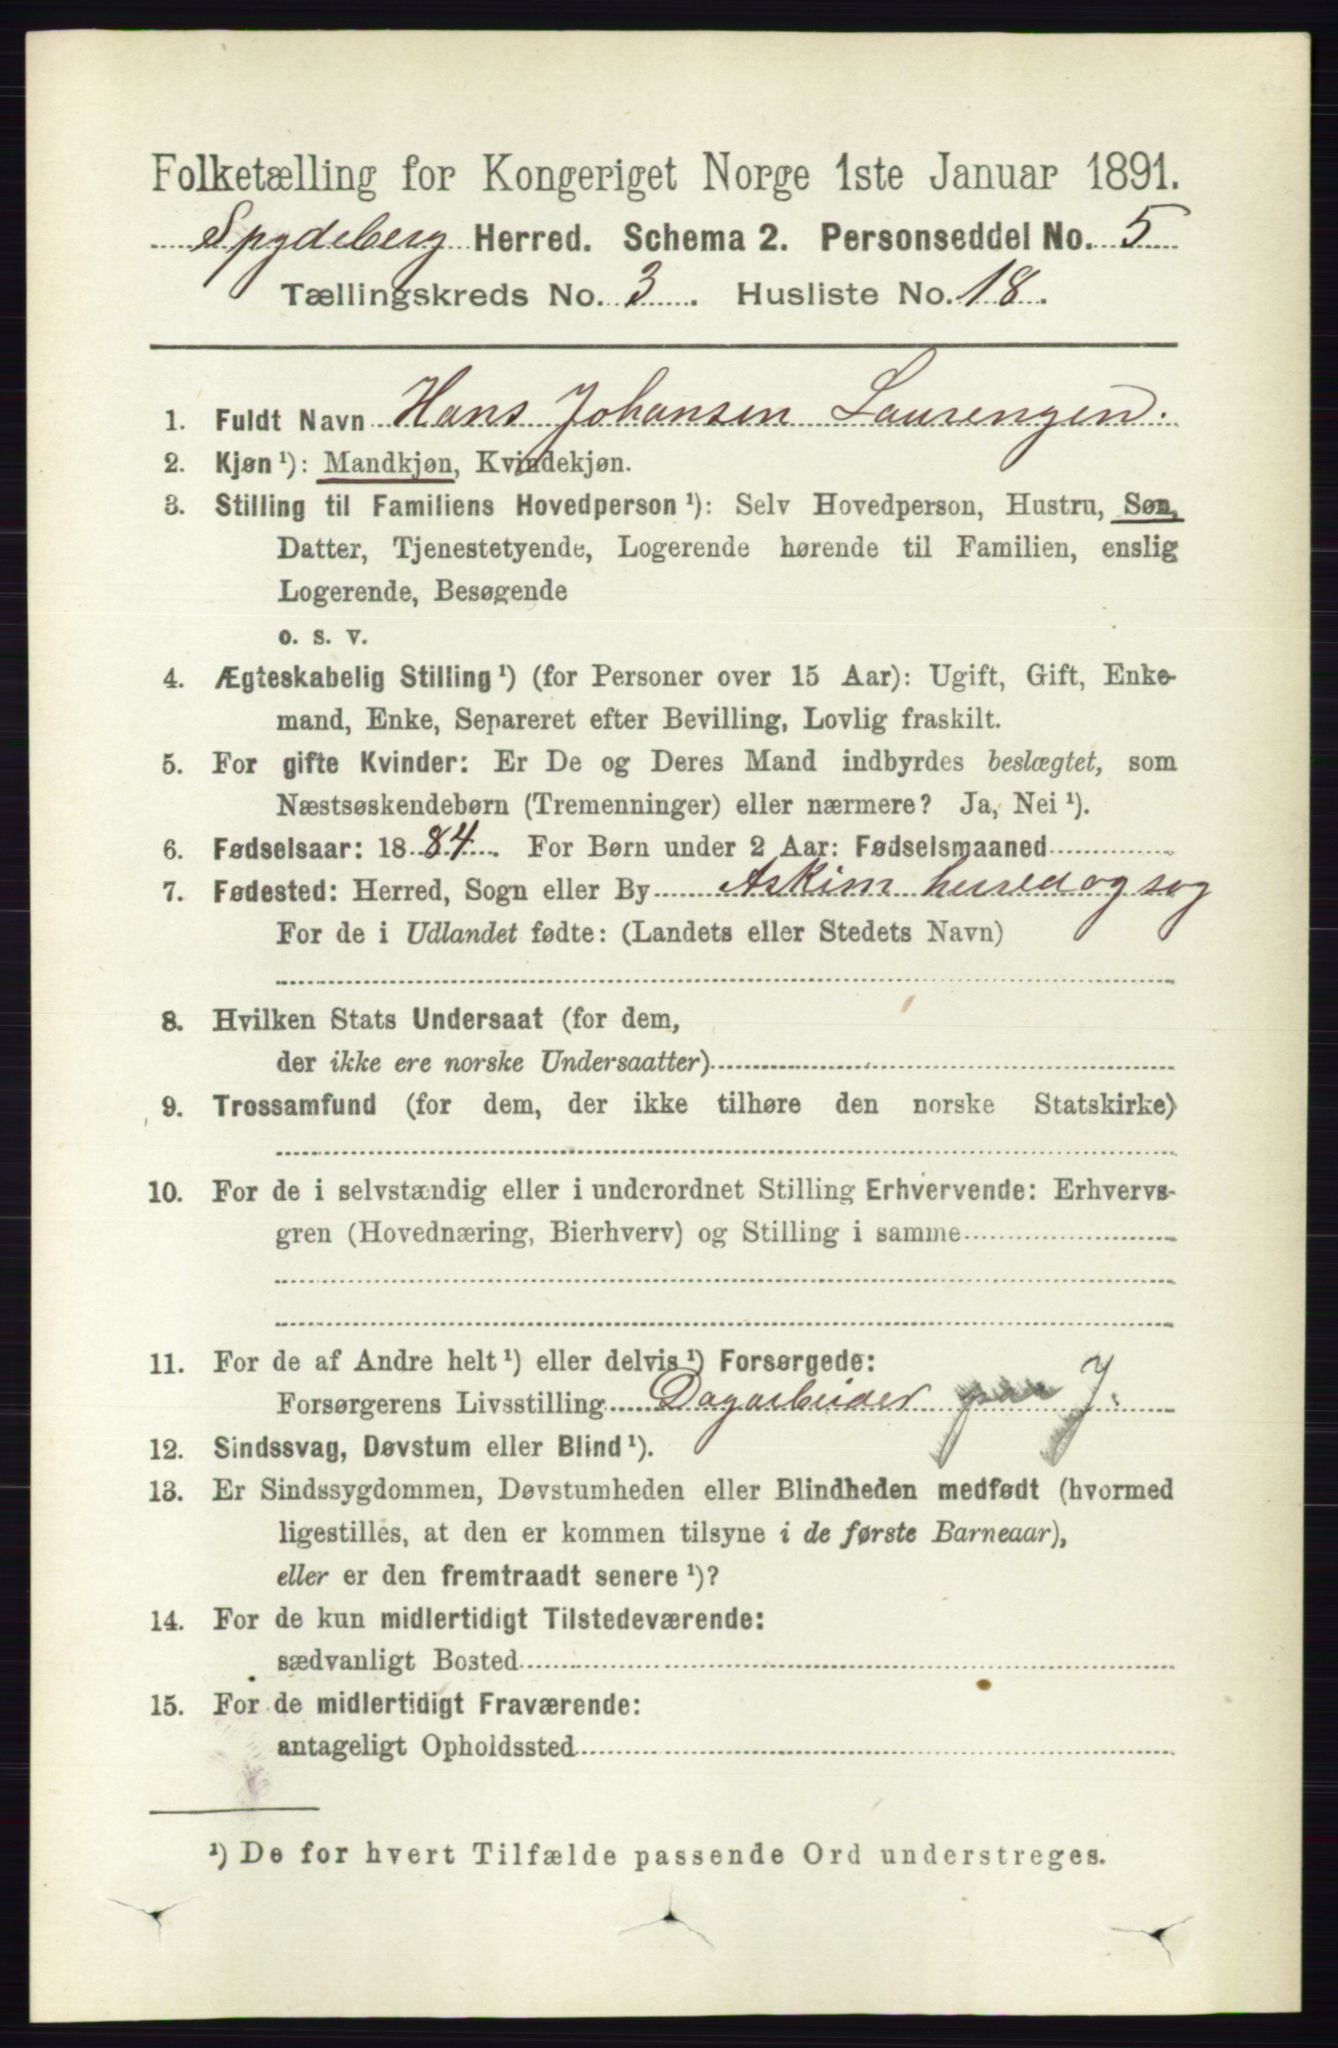 Folketælling for Kongeriget Norge 1ste Januar 1891.
Spydeberg Herred. Schema 2. Personseddel No. 5
Tællingskreds No. 3. Husliste No. 18.
1. Fuldt Navn Hans Johansen Laurengen.
2. Kjøn ¹): Mandkjøn, Kvindekjøn.
3. Stilling til Familiens Hovedperson ¹): Selv Hovedperson, Hustru, Søn,
Datter, Tjenestetyende, Logerende hørende til Familien, enslig
Logerende, Besøgende
o. s. v.
4. Ægteskabelig Stilling ¹) (for Personer over 15 Aar): Ugift, Gift, Enke-
mand, Enke, Separeret efter Bevilling, Lovlig fraskilt.
5. For gifte Kvinder: Er De og Deres Mand indbyrdes beslægtet, som
Næstsøskendebørn (Tremenninger) eller nærmere? Ja, Nei ¹).
6. Fødselsaar: 1884. For Børn under 2 Aar: Fødselsmaaned
7. Fødested: Herred, Sogn eller By Askim herred og sog
For de i Udlandet fødte: (Landets eller Stedets Navn)
8. Hvilken Stats Undersaat (for dem,
der ikke ere norske Undersaatter)
9. Trossamfund (for dem, der ikke tilhøre den norske Statskirke)
10. For de i selvstændig eller i underordnet Stilling Erhvervende: Erhvervs-
gren (Hovednæring, Bierhverv) og Stilling i samme
11. For de af Andre helt ¹) eller delvis ¹) Forsørgede:
Forsørgerens Livsstilling Dagarbeider J.
12. Sindssvag, Døvstum eller Blind ¹).
13. Er Sindssygdommen, Døvstumheden eller Blindheden medfødt (hvormed
ligestilles, at den er kommen tilsyne i de første Barneaar),
eller er den fremtraadt senere ¹)?
14. For de kun midlertidigt Tilstedeværende:
sædvanligt Bosted
15. For de midlertidigt Fraværende:
antageligt Opholdssted
¹) De for hvert Tilfælde passende Ord understreges.